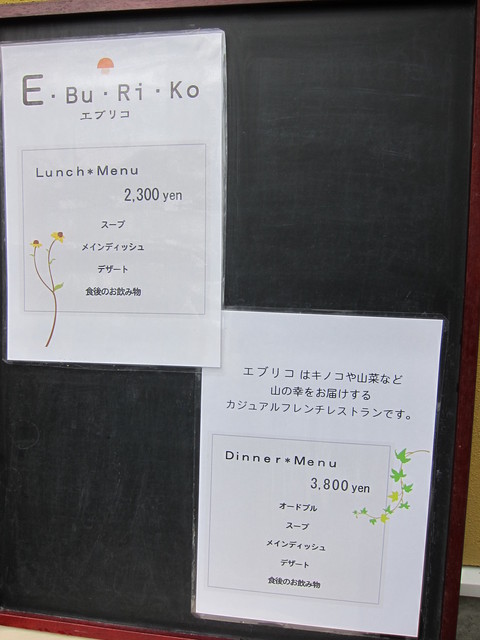 E・Bu・Ri・Ko
エブリコ
Lunch*Menu
2,300 yen
スープ
メインディッシュ
デザート
食後のお飲み物
エブリコ はキノコや山菜など
山の幸をお届けする
カジュアルフレンチレストランです。
Dinner*Menu
3,800 yen
オードブル
スープ
メインディッシュ
デザート
食後のお飲み物